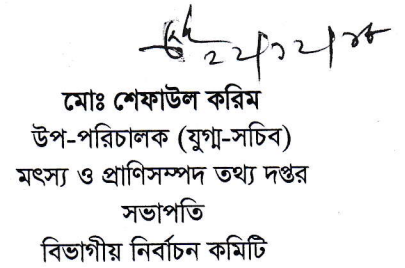 ২২/১২/২৪
মোঃ শেফাউল করিম
উপ-পরিচালক (যুগ্ম-সচিব)
মৎস্য ও প্রাণিসম্পদ তথ্য দপ্তর
সভাপতি
বিভাগীয় নির্বাচন কমিটি